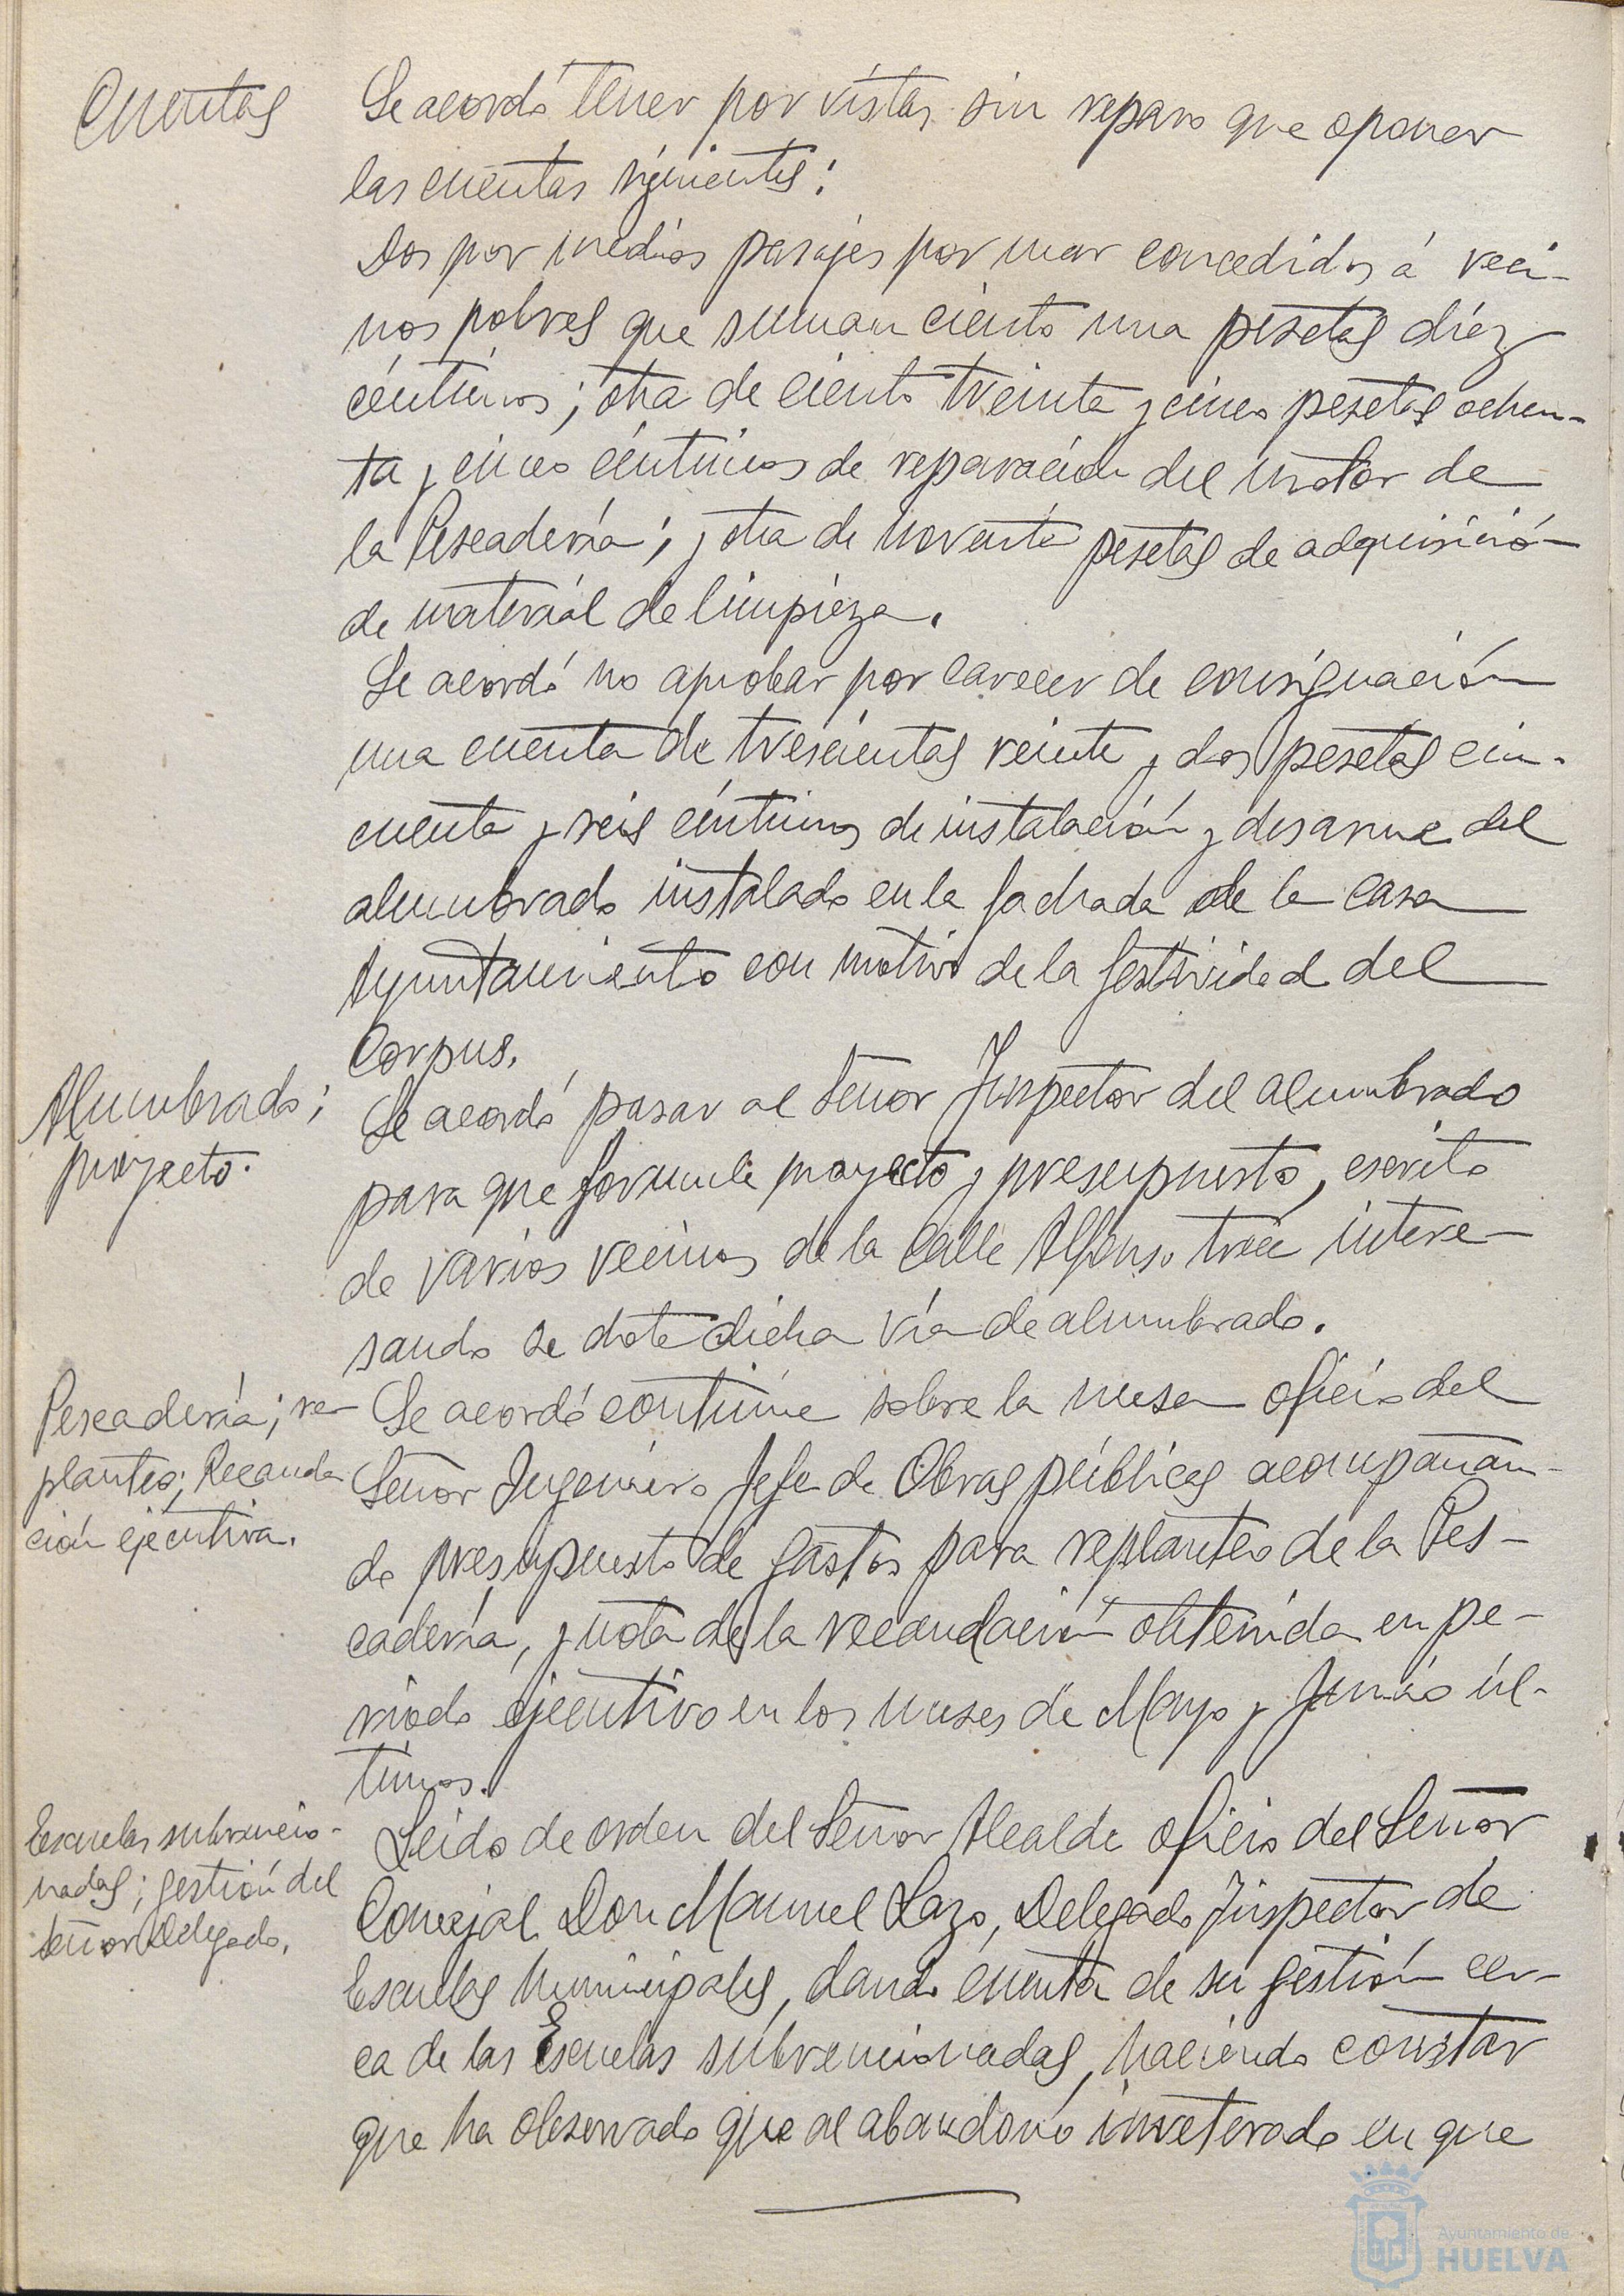 Cuentas
Se acordó tener por vistas sin reparo que oponer
las cuentas siguientes:
Dos por medios pasajes por mar concedidos á veci-
nos pobres que suman ciento una pesetas diez
céntimos; otra de ciento treinta y cinco pesetas ochen-
ta y cinco céntimos de reparación del motor de
la Pescadería; y otra de noventa pesetas de adquisición
de material de limpieza.
Se acordó no aprobar por carecer de consignación
una cuenta de trescientas veinte y dos pesetas cin-
cuenta y seis céntimos de instalación y desarme del
alumbrado instalado en la fachada de la casa
Ayuntamiento con motivo de la festividad del
Corpus.
Alumbrado;
proyecto.
Se acordó pasar al Señor Inspector del alumbrado
para que formule proyecto y presupuesto, escrito
de varios vecinos de la calle Alfonso trece intere-
sando se dote dicha vía de alumbrado.
Pescadería; re-
planteo; Recauda
ción ejecutiva.
Se acordó continúe sobre la mesa oficio del
Señor Ingeniero Jefe de Obras públicas acompañan-
do presupuesto de gastos para replanteo de la Pes-
cadería, y nota de la recaudación obtenida en pe-
riodo ejecutivo en los meses de Mayo y Junio úl-
timos.
Escuelas subvencio-
nadas; gestión del
Señor Delegado.
Leido de orden del Señor Alcalde oficio del Señor
Concejal Don Manuel Lazo, Delegado Inspector de
Escuelas Municipales, dando cuenta de su gestión cer-
ca de las Escuelas subvencionadas, haciendo constar
que ha observado que al abandono inveterado en que
Ayuntamiento de
HUELVA